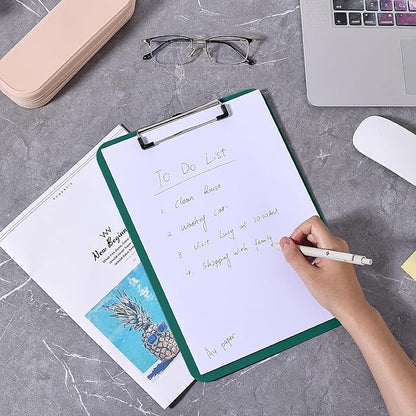 To Do List
1 Clean House
2 Washing Car
3 Visit Lucy at 10:00AM
4. Shopping with family
A4 paper
New Beginn